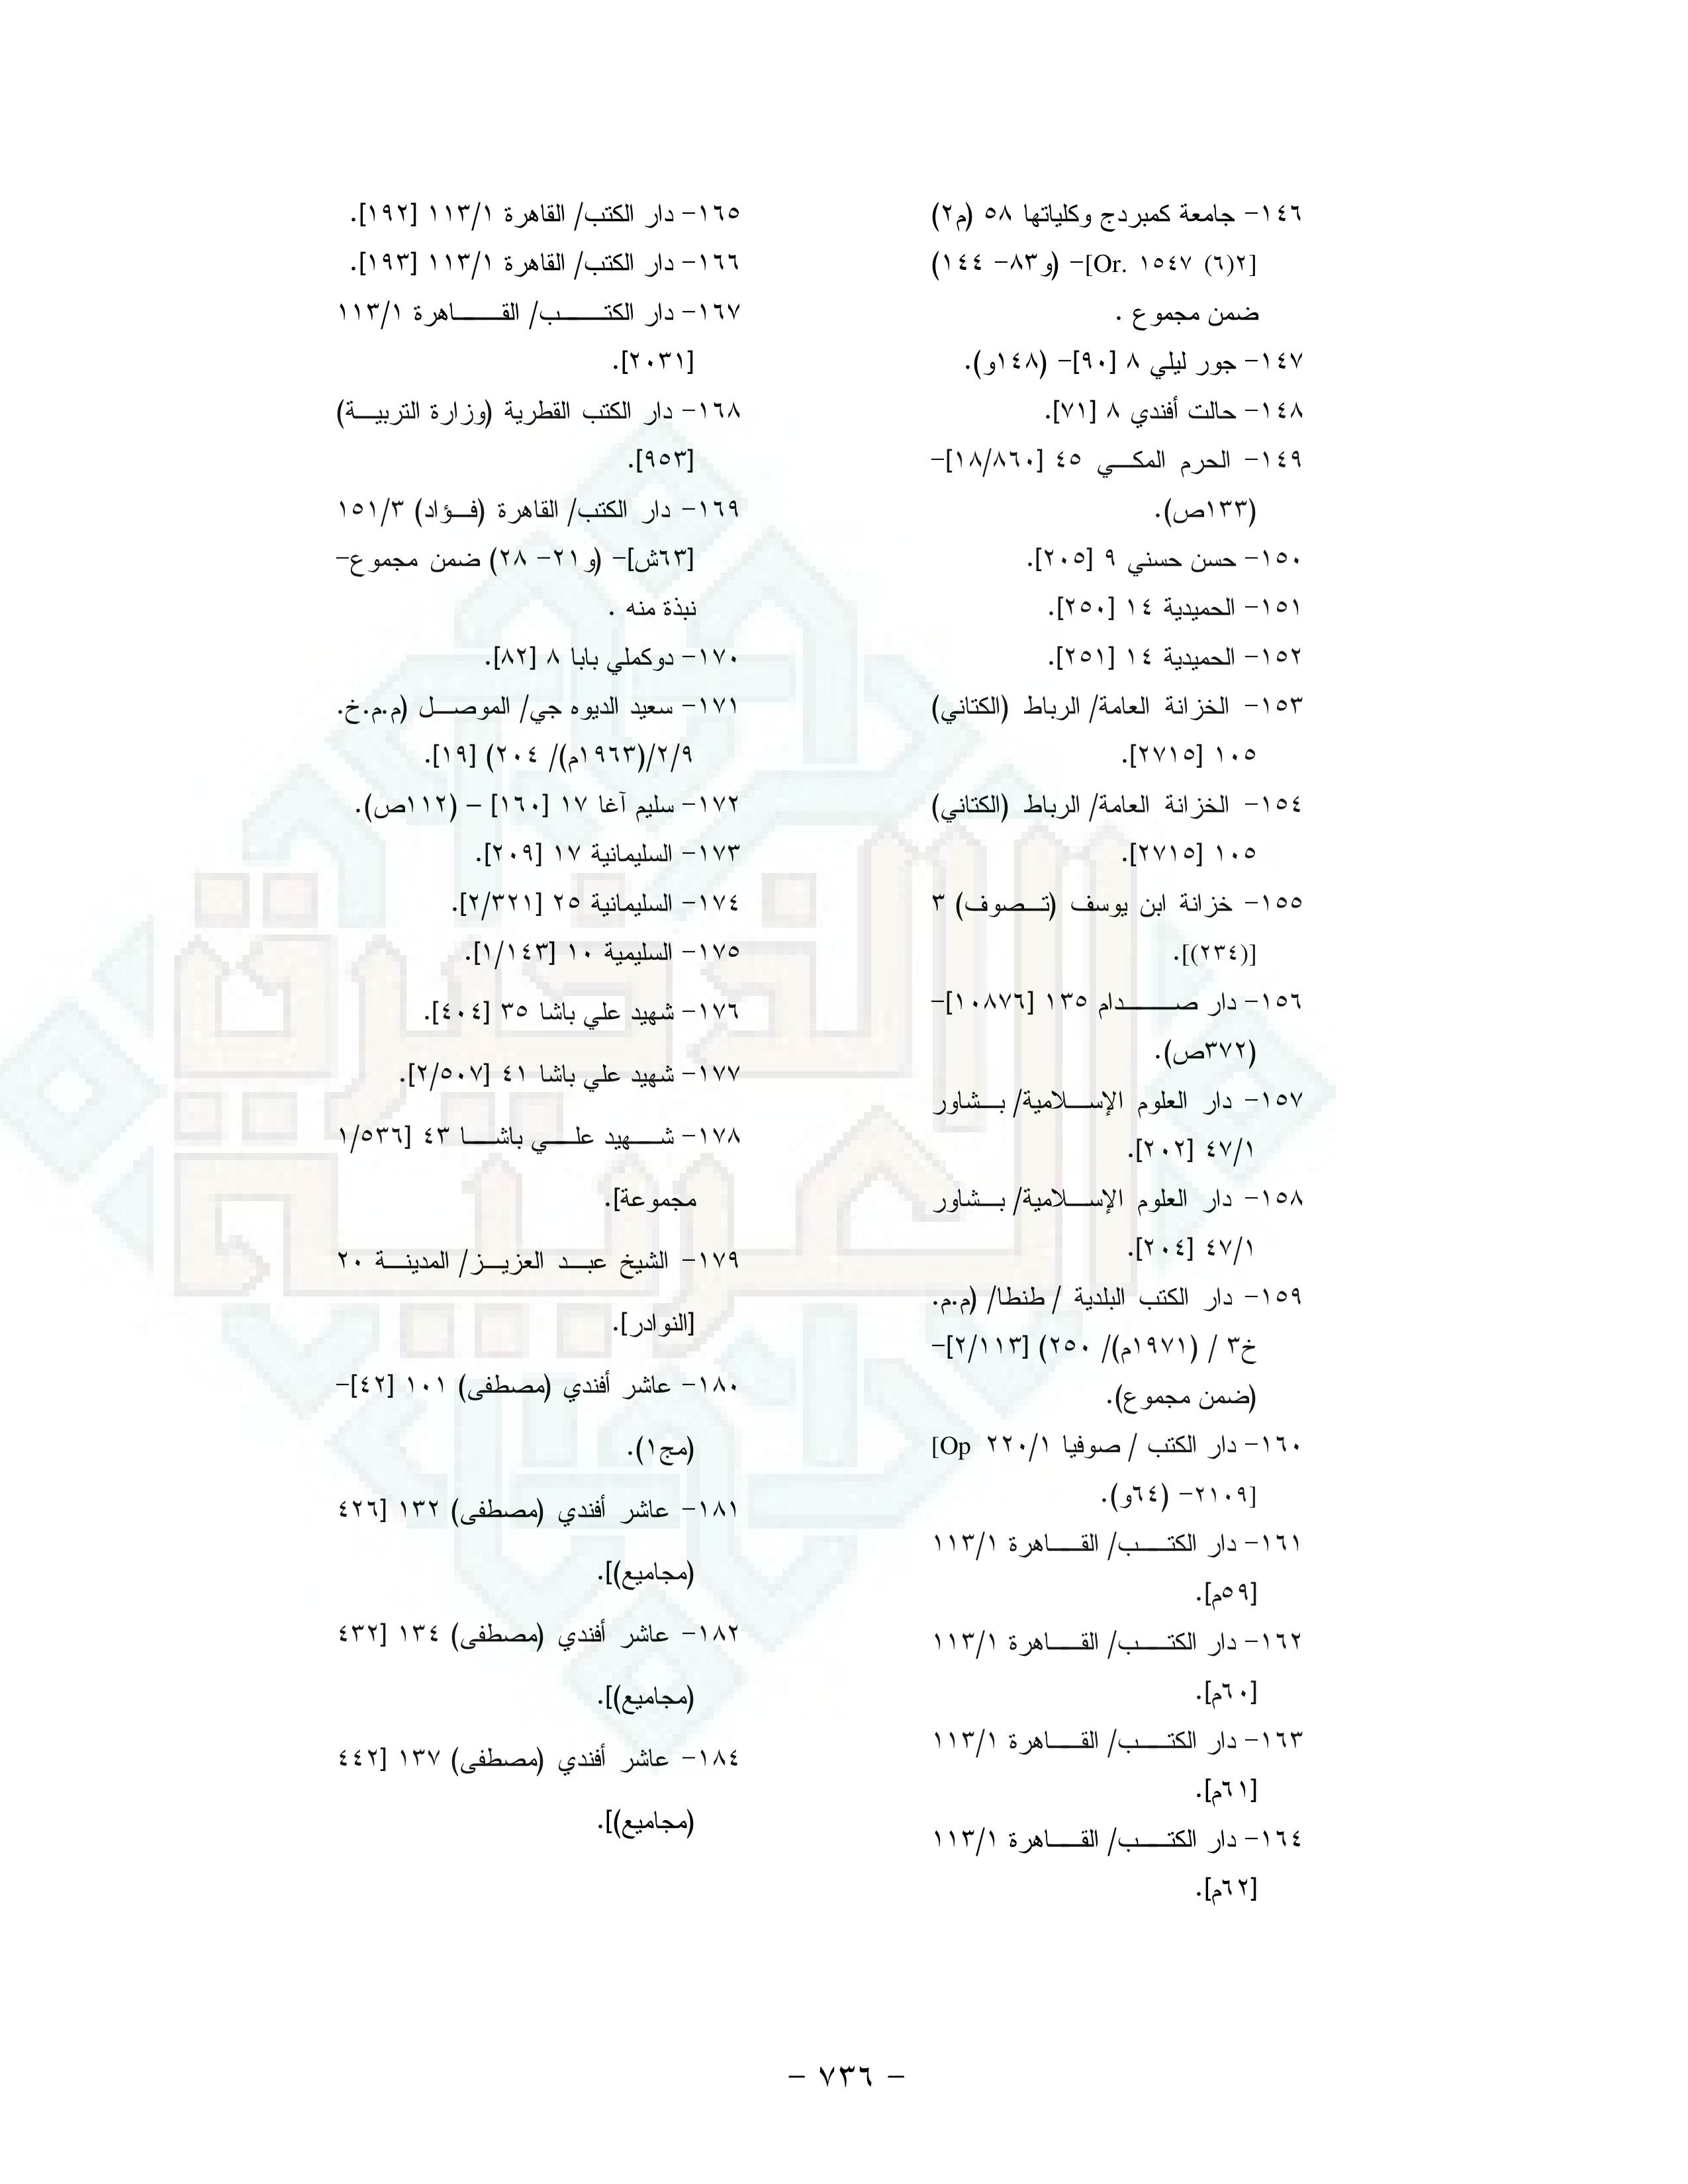 ١٤٦- جامعة كمبردج وكلياتها ٥٨ (م٢)
[Or. ١٥٤٧ (٦)٢]- (و٨٣- ١٤٤)
ضمن مجموع .
١٤٧- جور ليلي ٨ [٩٠]- (١٤٨و).
١٤٨- حالت أفندي ٨ [٧١].
١٤٩- الحرم المكي ٤٥ [١٨/٨٦٠]-
(١٣٣ص).
١٥٠- حسن حسني ٩ [٢٠٥].
١٥١- الحميدية ١٤ [٢٥٠].
١٥٢- الحميدية ١٤ [٢٥١].
١٥٣- الخزانة العامة/ الرباط (الكتاني)
١٠٥ [٢٧١٥].
١٥٤- الخزانة العامة/ الرباط (الكتاني)
١٠٥ [٢٧١٥].
١٥٥- خزانة ابن يوسف (تصوف) ٣
[(٢٣٤)].
١٥٦- دار صدام ١٣٥ [١٠٨٧٦]-
(٣٧٢ص).
١٥٧- دار العلوم الإسلامية/ بشاور
٤٧/١ [٢٠٢].
١٥٨- دار العلوم الإسلامية/ بشاور
٤٧/١ [٢٠٤].
١٥٩- دار الكتب البلدية / طنطا/ (م.م.
خ٣ / (١٩٧١م)/ ٢٥٠) [٢/١١٣]-
(ضمن مجموع).
١٦٠- دار الكتب / صوفيا ٢٢٠/١ [Op
٢١٠٩]- (٦٤و).
١٦١- دار الكتب/ القاهرة ١١٣/١
[٥٩م].
١٦٢- دار الكتب/ القاهرة ١١٣/١
[٦٠م].
١٦٣- دار الكتب/ القاهرة ١١٣/١
[٦١م].
١٦٤- دار الكتب/ القاهرة ١١٣/١
[٦٢م].
١٦٥- دار الكتب/ القاهرة ١١٣/١ [١٩٢].
١٦٦- دار الكتب/ القاهرة ١١٣/١ [١٩٣].
١٦٧- دار الكتب/ القاهرة ١١٣/١
[٢٠٣١].
١٦٨- دار الكتب القطرية (وزارة التربية)
[٩٥٣].
١٦٩- دار الكتب/ القاهرة (فؤاد) ١٥١/٣
[٦٣ش]- (و٢١- ٢٨) ضمن مجموع-
نبذة منه .
١٧٠- دوكملي بابا ٨ [٨٢].
١٧١- سعيد الديوه جي/ الموصل (م.م.خ.
٢/٩/(١٩٦٣م)/ ٢٠٤) [١٩].
١٧٢- سليم آغا ١٧ [١٦٠] – (١١٢ص).
١٧٣- السليمانية ١٧ [٢٠٩].
١٧٤- السليمانية ٢٥ [٢/٣٢١].
١٧٥- السليمية ١٠ [١/١٤٣].
١٧٦- شهيد علي باشا ٣٥ [٤٠٤].
١٧٧- شهيد علي باشا ٤١ [٢/٥٠٧].
١٧٨- شهيد علي باشا ٤٣ [١/٥٣٦
مجموعة].
١٧٩- الشيخ عبد العزيز/ المدينة ٢٠
[النوادر].
١٨٠- عاشر أفندي (مصطفى) ١٠١ [٤٢]-
(مج١).
١٨١- عاشر أفندي (مصطفى) ١٣٢ [٤٢٦
(مجاميع)].
١٨٢- عاشر أفندي (مصطفى) ١٣٤ [٤٣٢
(مجاميع)].
١٨٤- عاشر أفندي (مصطفى) ١٣٧ [٤٤٢
(مجاميع)].
الذخيرة
العربية
- ٧٣٦ -